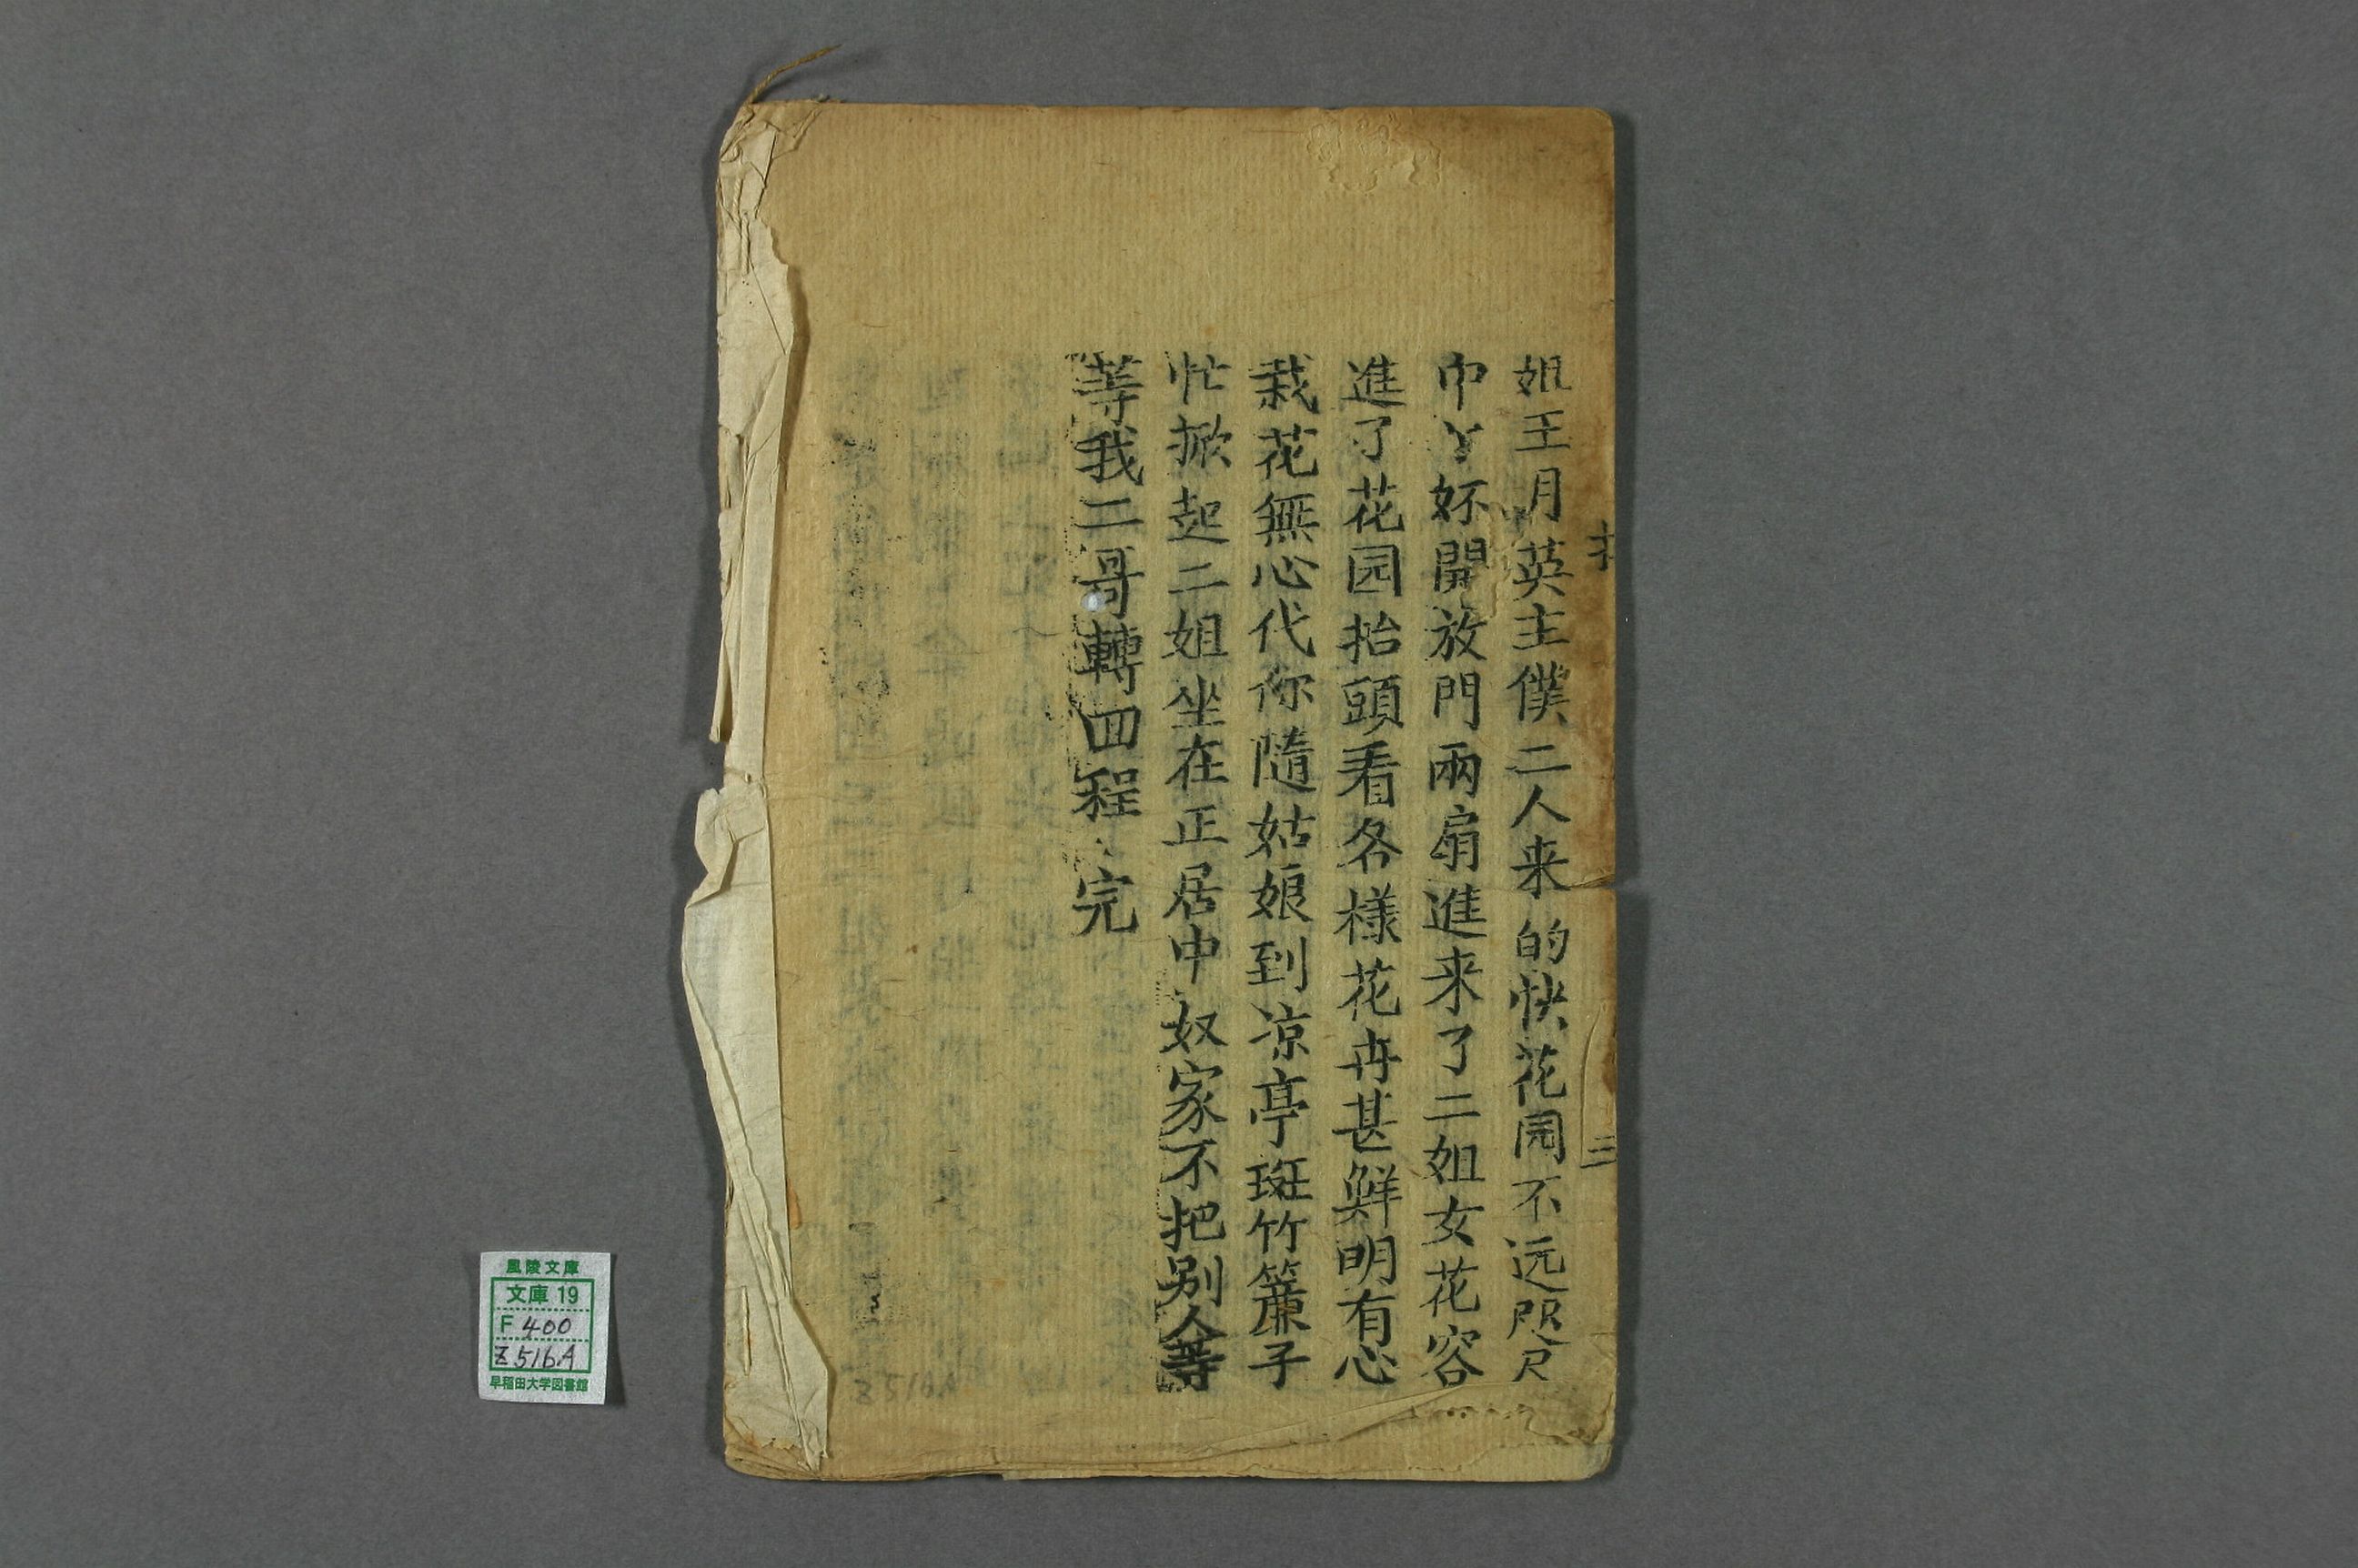 姐王月英主僕二人来的快花园不远咫尺
中丫妚開放門兩扇進来了二姐女花容
進了花园抬頭看各様花卉甚鮮明有心
栽花無心代你隨姑娘到凉亭斑竹簾子
忙掀起二姐坐在正居中奴家不把别人等
等我二哥轉回程完
三
風陵文庫
文庫 19
F 400
Z 516A
早稲田大学図書館
Z516A